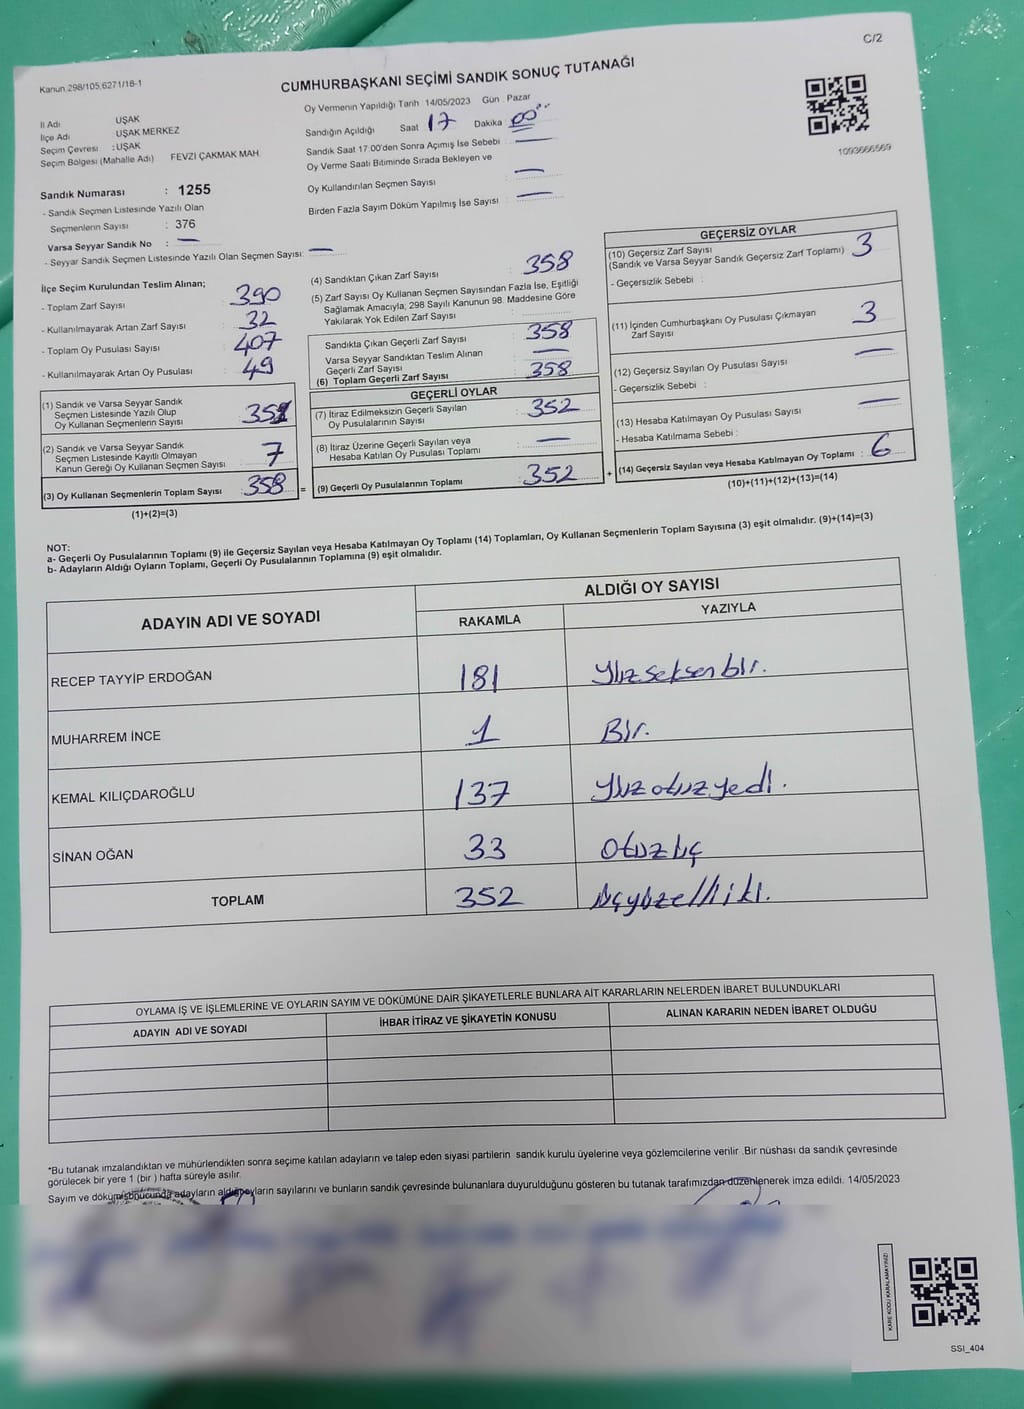 C/2
Kanun 298/105,6271/18-1
CUMHURBAŞKANI SEÇİMİ SANDIK SONUÇ TUTANAĞI
İl Adı UŞAK
İlçe Adı UŞAK MERKEZ
Seçim Çevresi : UŞAK
Seçim Bölgesi (Mahalle Adı) FEVZİ ÇAKMAK MAH.
Sandık Numarası : 1255
- Sandık Seçmen Listesinde Yazılı Olan
Seçmenlerin Sayısı : 376
Varsa Seyyar Sandık No : —
- Seyyar Sandık Seçmen Listesinde Yazılı Olan Seçmen Sayısı: —
Oy Vermenin Yapıldığı Tarih 14/05/2023 Gün Pazar
Sandığın Açıldığı Saat 17 Dakika 00
Sandık Saat 17:00'den Sonra Açımış İse Sebebi —
Oy Verme Saati Bitiminde Sırada Bekleyen ve
Oy Kullandırılan Seçmen Sayısı : —
Birden Fazla Sayım Döküm Yapılmış İse Sayısı : —
1093666569
İlçe Seçim Kurulundan Teslim Alınan;
- Toplam Zarf Sayısı : 390
- Kullanılmayarak Artan Zarf Sayısı : 32
- Toplam Oy Pusulası Sayısı : 407
- Kullanılmayarak Artan Oy Pusulası : 49
(1) Sandık ve Varsa Seyyar Sandık
Seçmen Listesinde Yazılı Olup
Oy Kullanan Seçmenlerin Sayısı : 351
(2) Sandık ve Varsa Seyyar Sandık
Seçmen Listesinde Kayıtlı Olmayan
Kanun Gereği Oy Kullanan Seçmen Sayısı : 7
(3) Oy Kullanan Seçmenlerin Toplam Sayısı : 358 =
(1)+(2)=(3)
(4) Sandıktan Çıkan Zarf Sayısı : 358
(5) Zarf Sayısı Oy Kullanan Seçmen Sayısından Fazla İse, Eşitliği
Sağlamak Amacıyla, 298 Sayılı Kanunun 98. Maddesine Göre
Yakılarak Yok Edilen Zarf Sayısı :
Sandıkta Çıkan Geçerli Zarf Sayısı : 358
Varsa Seyyar Sandıktan Teslim Alınan
Geçerli Zarf Sayısı : —
(6) Toplam Geçerli Zarf Sayısı : 358
GEÇERLİ OYLAR
(7) İtiraz Edilmeksizin Geçerli Sayılan
Oy Pusulalarının Sayısı : 352
(8) İtiraz Üzerine Geçerli Sayılan veya
Hesaba Katılan Oy Pusulası Toplamı : —
(9) Geçerli Oy Pusulalarının Toplamı : 352 +
GEÇERSİZ OYLAR
(10) Geçersiz Zarf Sayısı
(Sandık ve Varsa Seyyar Sandık Geçersiz Zarf Toplamı) : 3
- Geçersizlik Sebebi :
(11) İçinden Cumhurbaşkanı Oy Pusulası Çıkmayan
Zarf Sayısı : 3
(12) Geçersiz Sayılan Oy Pusulası Sayısı : —
- Geçersizlik Sebebi :
(13) Hesaba Katılmayan Oy Pusulası Sayısı : —
- Hesaba Katılmama Sebebi :
(14) Geçersiz Sayılan veya Hesaba Katılmayan Oy Toplamı : 6
(10)+(11)+(12)+(13)=(14)
NOT:
a- Geçerli Oy Pusulalarının Toplamı (9) ile Geçersiz Sayılan veya Hesaba Katılmayan Oy Toplamı (14) Toplamları, Oy Kullanan Seçmenlerin Toplam Sayısına (3) eşit olmalıdır. (9)+(14)=(3)
b- Adayların Aldığı Oyların Toplamı, Geçerli Oy Pusulalarının Toplamına (9) eşit olmalıdır.
ADAYIN ADI VE SOYADI ALDIĞI OY SAYISI
RAKAMLA YAZIYLA
RECEP TAYYİP ERDOĞAN 181 Yüzseksenbir.
MUHARREM İNCE 1 Bir.
KEMAL KILIÇDAROĞLU 137 Yüzotuzyedi.
SİNAN OĞAN 33 Otuzüç
TOPLAM 352 Üçyüzelliiki.
OYLAMA İŞ VE İŞLEMLERİNE VE OYLARIN SAYIM VE DÖKÜMÜNE DAİR ŞİKAYETLERLE BUNLARA AİT KARARLARIN NELERDEN İBARET BULUNDUKLARI
ADAYIN ADI VE SOYADI İHBAR İTİRAZ VE ŞİKAYETİN KONUSU ALINAN KARARIN NEDEN İBARET OLDUĞU
*Bu tutanak imzalandıktan ve mühürlendikten sonra seçime katılan adayların ve talep eden siyasi partilerin sandık kurulu üyelerine veya gözlemcilerine verilir .Bir nüshası da sandık çevresinde
görülecek bir yere 1 (bir ) hafta süreyle asılır.
Sayım ve döküm sonucunda adayların aldığı oyların sayılarını ve bunların sandık çevresinde bulunanlara duyurulduğunu gösteren bu tutanak tarafımızdan düzenlenerek imza edildi. 14/05/2023
KARE KODU KARALAMAYINIZ!
SSI_404